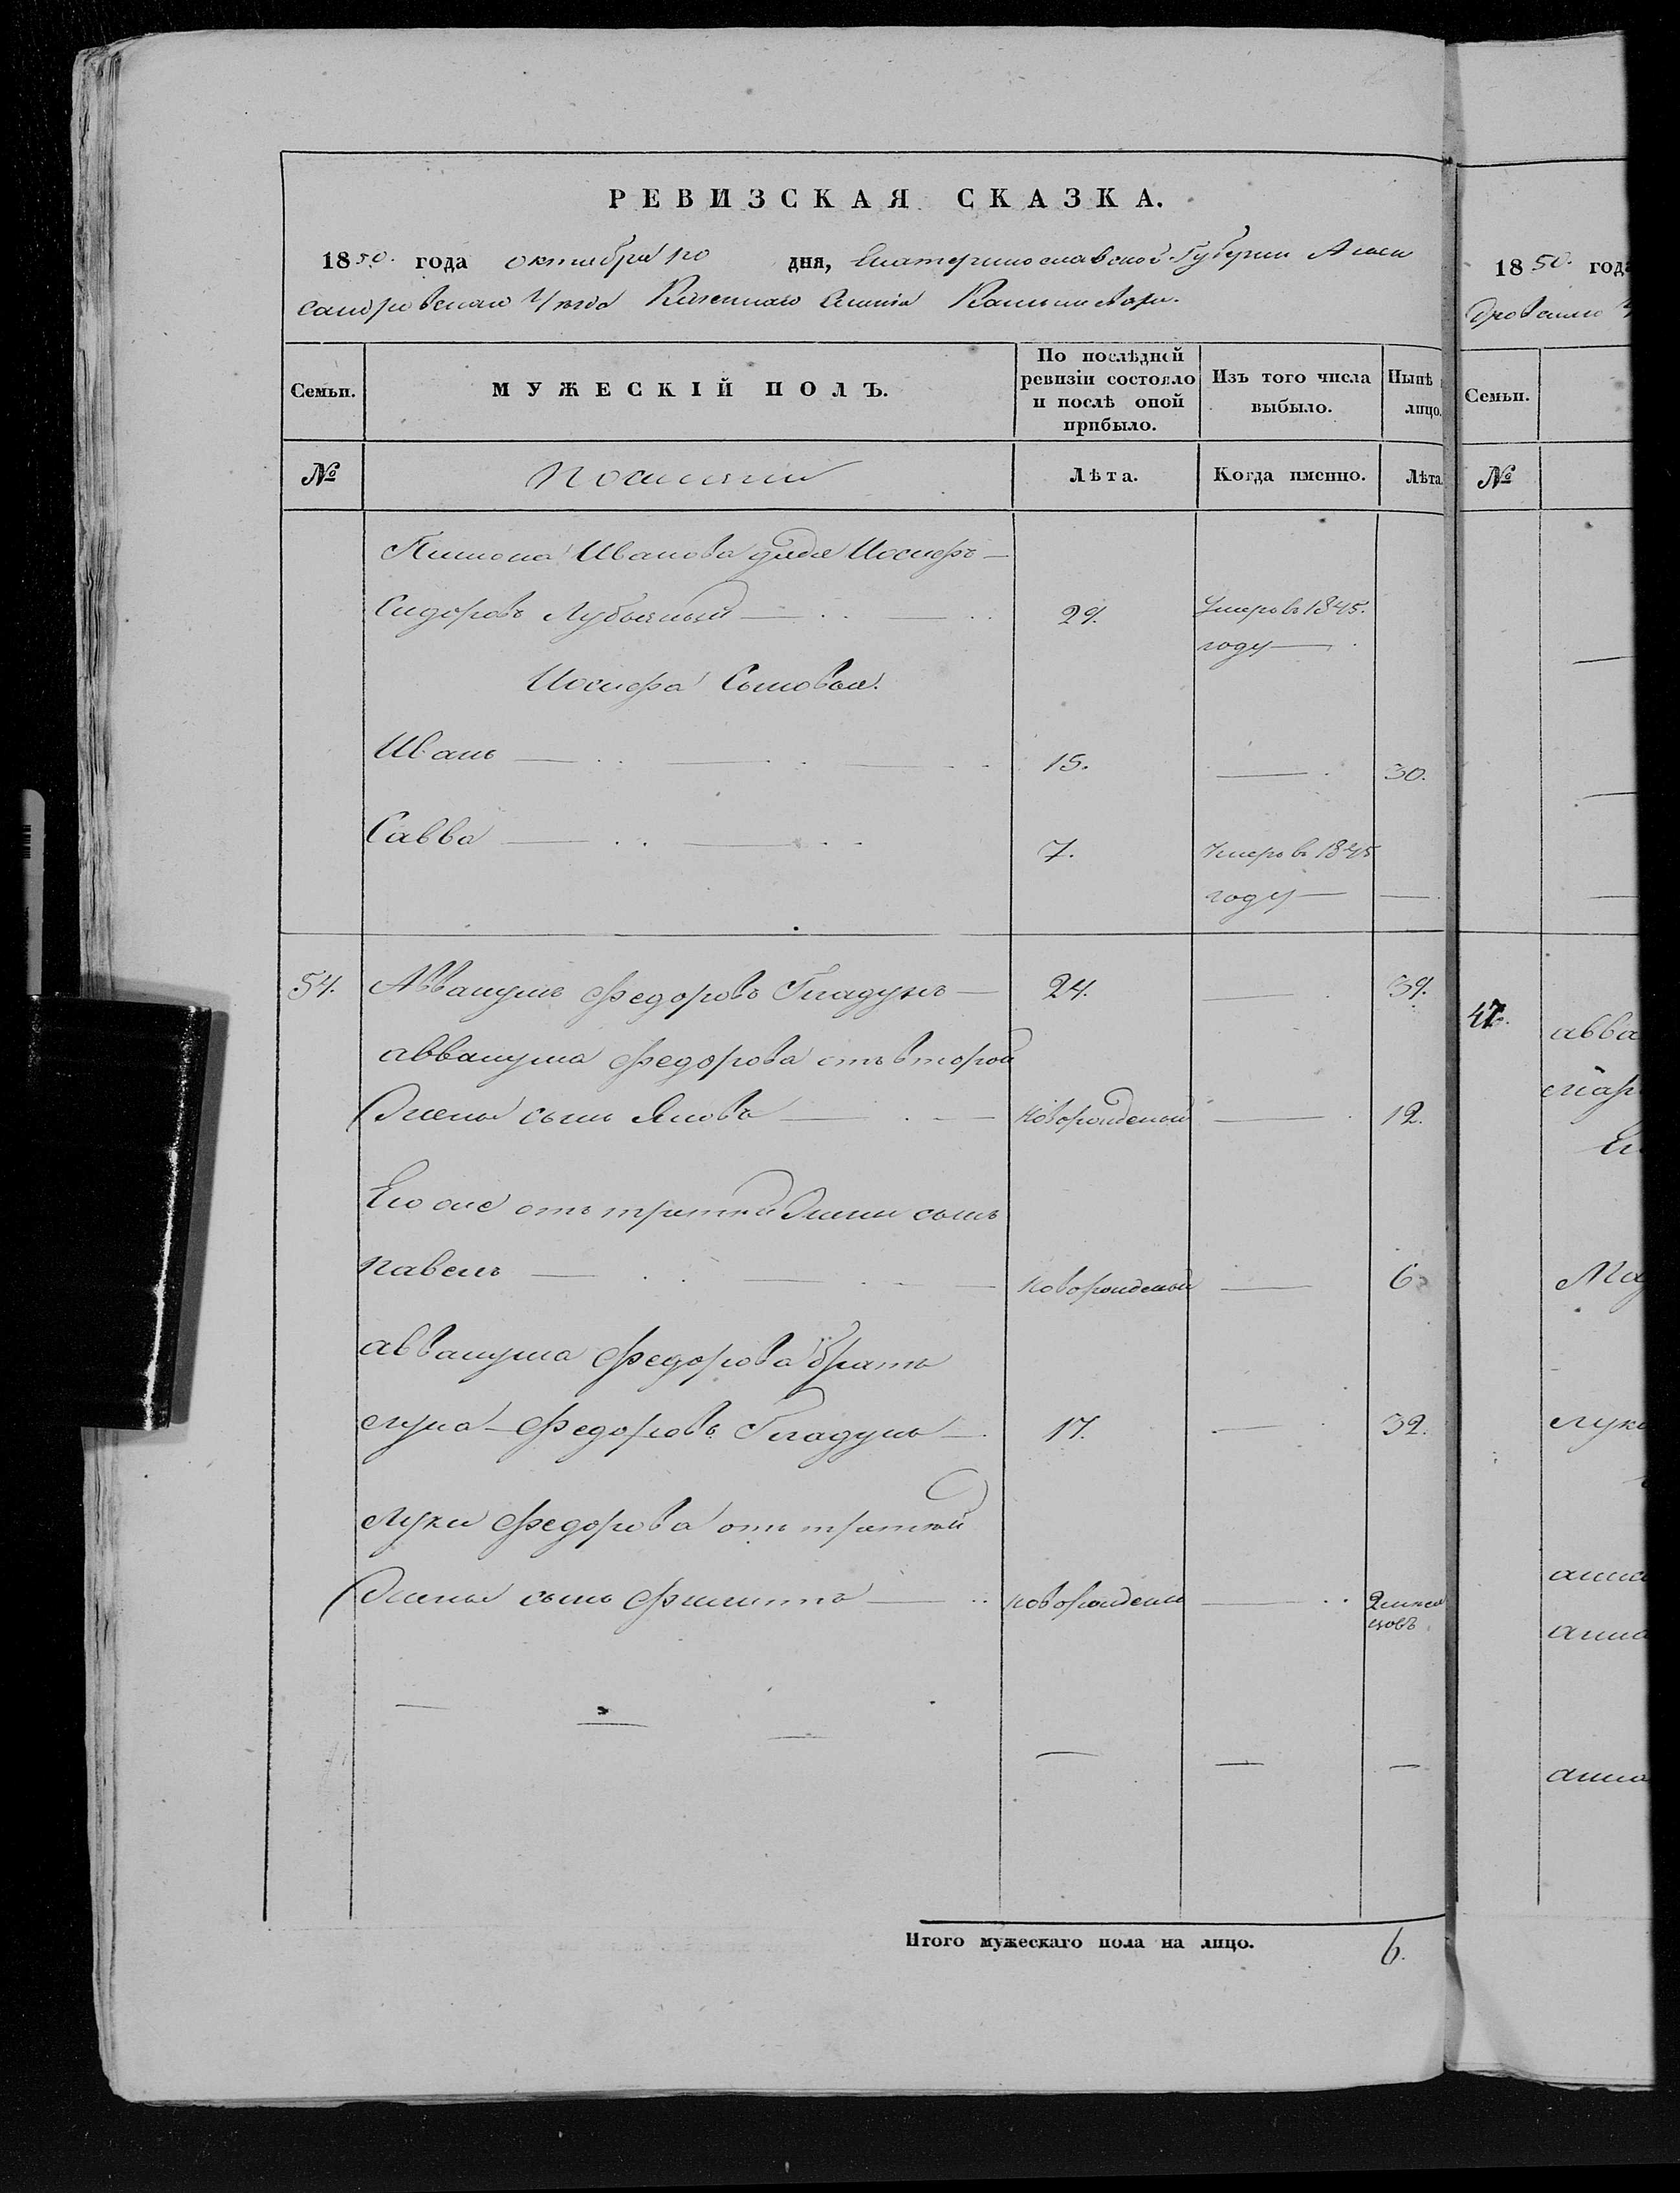 РЕВИЗСКАЯ СКАЗКА.
1850. года октября 10 дня, Екатеринославской Губернии Алек
сандровскаго Уезда Казеннаго Селения
МУЖЕСКІЙ ПОЛЪ.
Семьи.
По послѣдней
ревизіи состояло
и послѣ оной
прибыло.
Изъ того числа
выбыло.
Нынѣ
лицо.
№
Поселяни
Лѣта.
Когда именно.
Лѣта
Иванова дядя Иосифъ
Сидоровъ 29. Умеръ въ 1845.
году
Иосифа Сыновья.
Иванъ 15. 30.
Савва 7. Умеръ въ 1845
году
54. Аввакумъ Федоровъ Гладунъ 24. 39.
аввакума Федорова отъ второй
Жены сынъ Яковъ новорожденый 12.
Его же отъ третей Жены сынъ
павелъ новорожденый 6
аввакума Федорова братъ
лука Федоровъ Гладунъ 17. 32.
луки Федорова отъ третей
Жены сынъ Филиппъ новорожденый 2 мися
цовъ
Итого мужескаго пола на лицо. 6.
1850. год
Семьи.
№
47.
авва
мар
луки
анна
анна